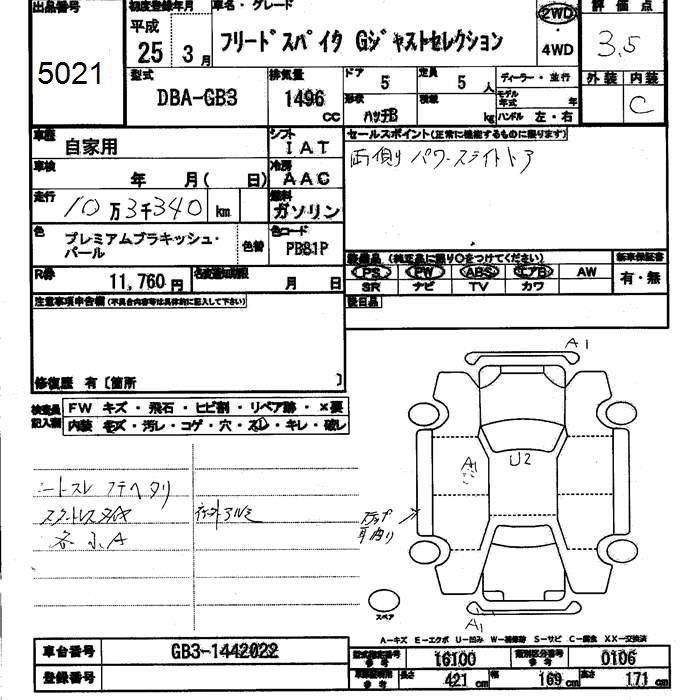 出品番号 初度登録年月 車名・グレード 2WD 評価点
5021 平成 25 3月 フリードスパイク Gジャストセレクション ・4WD 3.5
型式 排気量 ドア 5 定員 5人 ディーラー・並行 外装 内装
DBA-GB3 1496 CC 形状 ハッチB 積載 kg モデル年式 年 ハンドル 左・右 C
車歴 自家用 シフト IAT セールスポイント(正常に機能するものに限ります)
車検 年 月( 日) 冷房 AAC 両側 パワースライドドア
走行 10万3千340 km 燃料 ガソリン
色 プレミアムブラキッシュ・パール 色替 色コード PB81P 装備品 (純正品に限り○をつけてください) 新車保証書
PS PW ABS エアB AW 有・無
SR ナビ TV カワ
R券 11,760円 名変通知期限 月 日 後日品
注意事項申告欄(不具合内容等は具体的に記入して下さい)
修復歴 有〔箇所 〕
検査員記入欄 FW キズ・飛石・ヒビ割・リペア跡・×要
内装 キズ・汚レ・コゲ・穴・スレ・キレ・破レ
A1
U2
A1
シートスレ フテヘタリ
スタットレスタイヤ 社外アルミ
各小A
ステップ
A1
スペア
A-キズ E-エクボ U-凹み W-補修跡 S-サビ C-腐食 XX-交換済
車台番号 GB3-1442022 型式指定番号 参考 16100 類別区分番号 参考 0106
登録番号 車両寸法 参考 長さ 421cm 幅 169cm 高さ 171cm